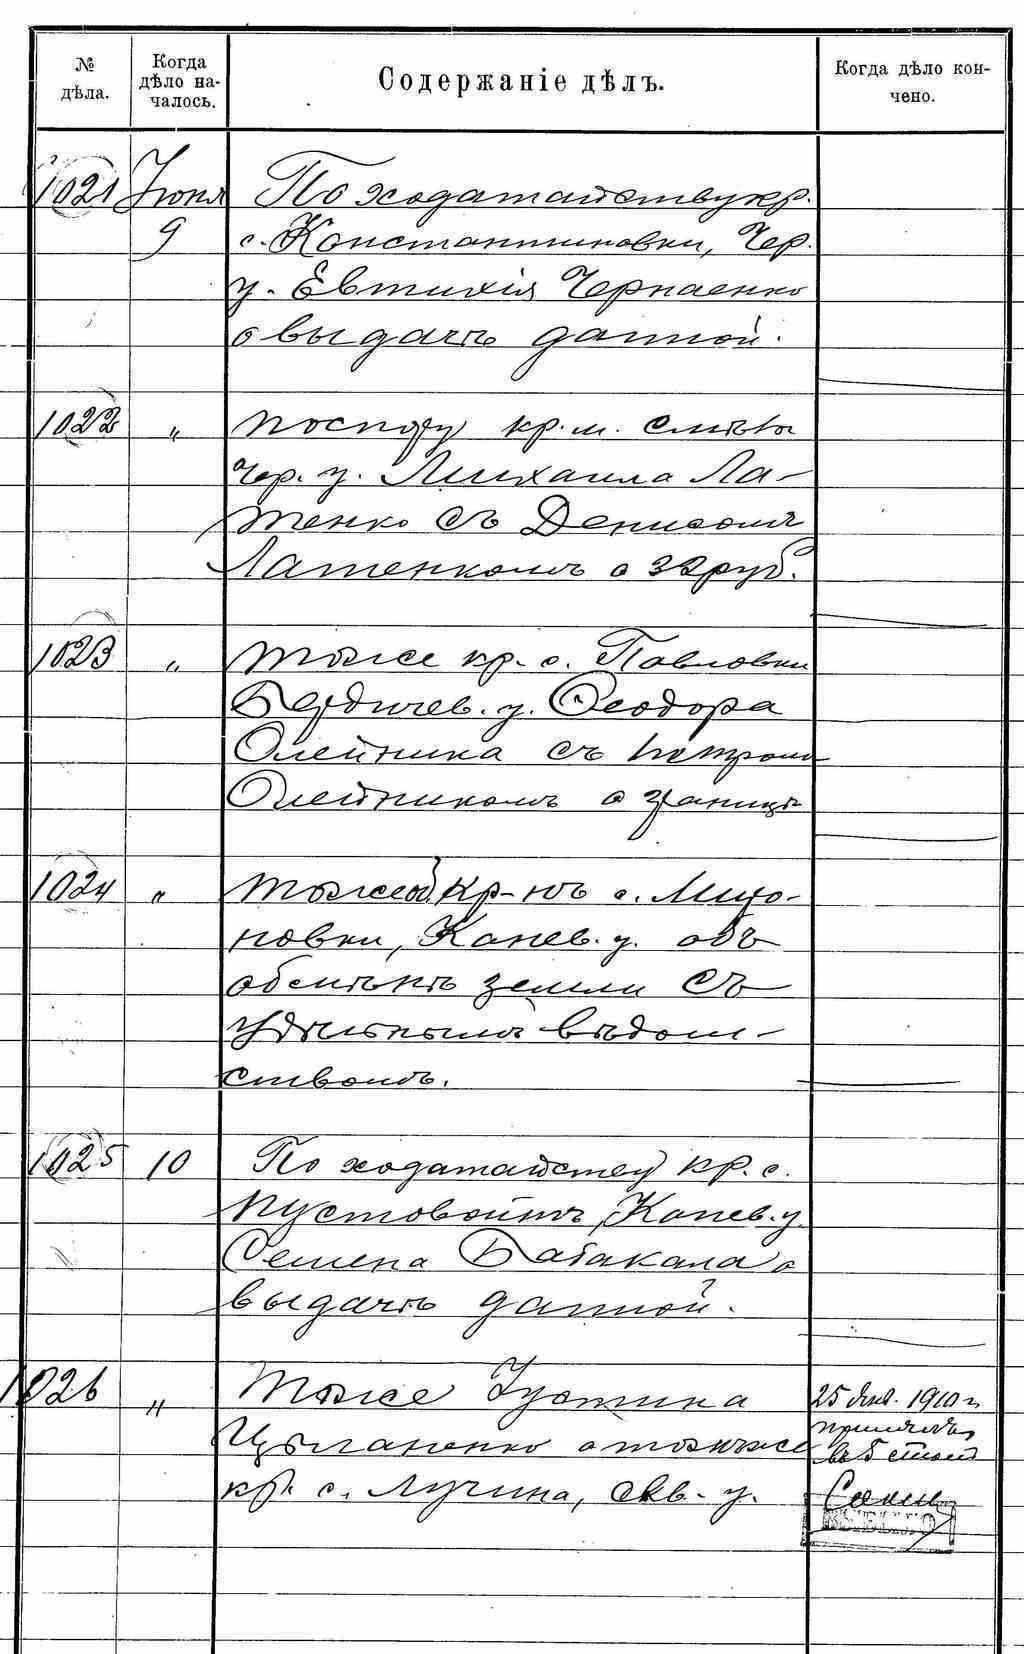 № дѣла.
Когда дѣло на-
чалось.
Содержаніе дѣлъ.
Когда дѣло кон-
чено.
1021 Іюня По ходатайству кр.
9 с. Константиновки, Чер.
у. Евтихія Черпаенко
о выдачѣ данной.
1022 „ По спору кр. м. Смѣлы
Чер. у. Михаила Ла-
тенко съ Денисомъ
Латенкомъ о 32 руб.
1023 „ Тоже кр. с. Павловки
Бердичев. у. Ѳеодора
Олейника съ Петромъ
Олейникомъ о границѣ
1024 „ кр-нъ с.
новки, Канев. у. объ
обмѣнѣ земли съ
Удѣльнымъ вѣдом-
ствомъ.
1025 10 По ходатайству кр. с.
Пустовойтъ, Канев. у.
Семена Бабакала о
выдачѣ данной.
1026 „ Тоже Іустина 25 1910 г.
Цыганенко о томъ же
кр. с. Лучина, Скв. у.